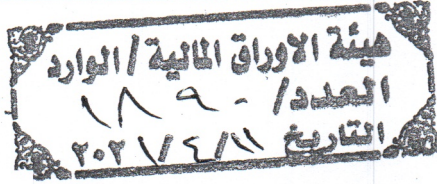 هيئة الاوراق المالية / الوارد
العدد / ١٨٩٠
التاريخ ٢٠٢١/٤/١١